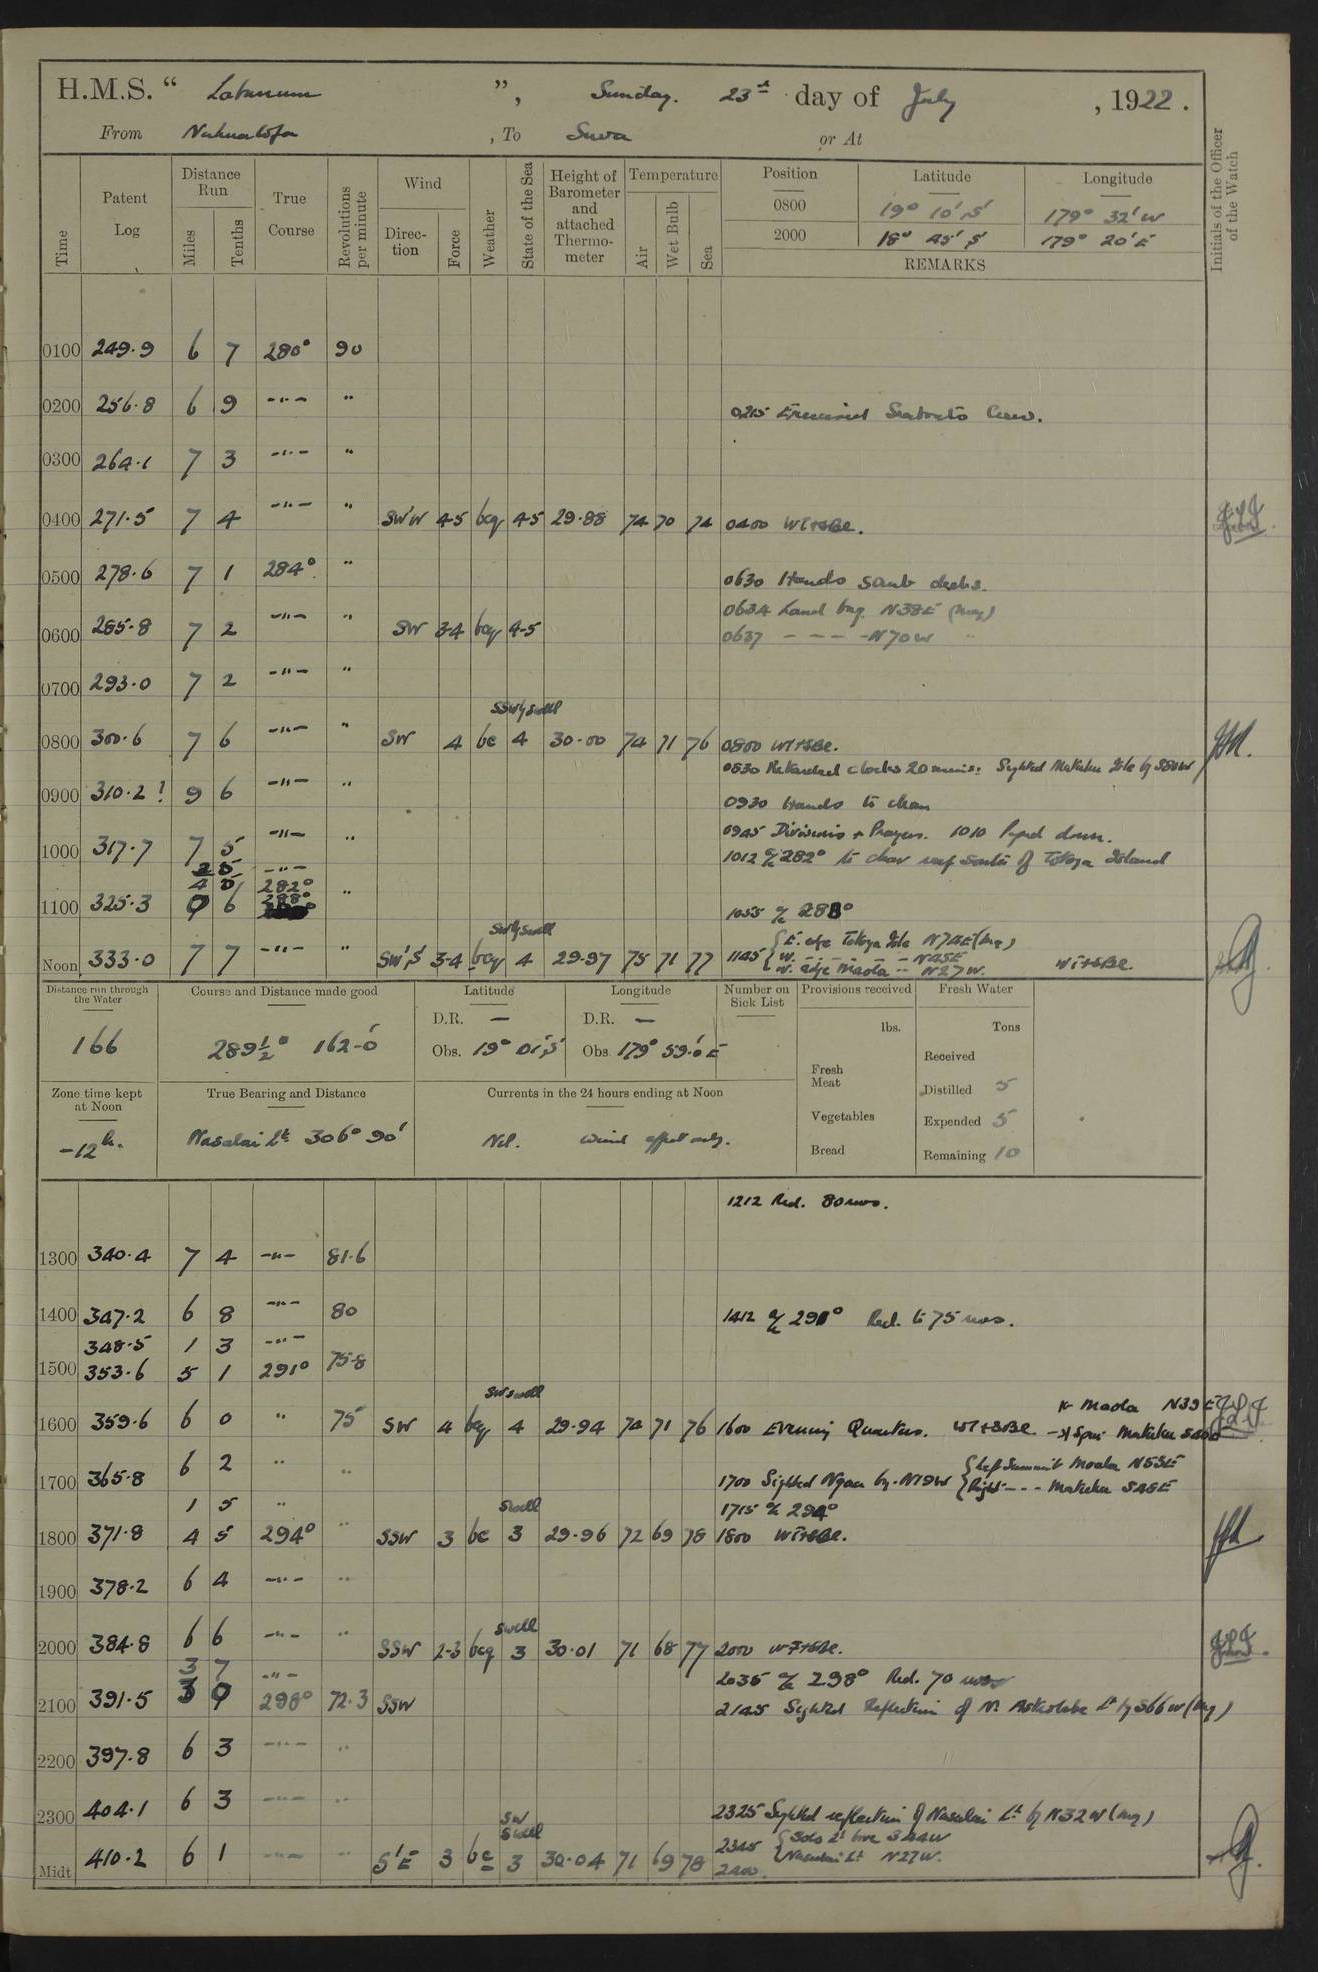 H.M.S. “ Labunum ”, Sunday. 23rd day of July , 1922 .
From Nukualofa , To Suva or At
Time
Patent Log
Distance Run
Miles
Tenths
True Course
Revolutions per minute
Wind
Direction
Force
Weather
State of the Sea
Height of Barometer and attached Thermometer
Temperature
Air
Wet Bulb
Sea
Position Latitude Longitude
0800 19° 10' S' 179° 32' W
2000 18° 45' S' 179° 20' E
REMARKS
Initials of the Officer of the Watch
0100 249.9 6 7 280° 90
0200 256.8 6 9 -"- "
0215 Exercised Seaboats Crew.
0300 264.1 7 3 -"- "
0400 271.5 7 4 -"- " SW'W 4-5 bcq 4-5 29.88 74 70 74 0400 WT+SBE.
0500 278.6 7 1 284° "
0630 Hands scrub decks.
0634 Land brg. N38E (mag)
0600 285.8 7 2 -"- " SW 3-4 bcq 4-5
0637 - - - - N70W "
0700 293.0 7 2 -"- "
SSWly swell
0800 300.6 7 6 -"- " SW 4 bc 4 30.00 74 71 76 0800 WT+SBE.
0830 Retarded clocks 20 mins: Sighted Matuku Isle by S80W
0900 310.2? 9 6 -"- "
0930 Hands to clean
0945 Divisions + Prayers. 1010 Piped down.
1000 317.7 7 5 -"- "
1012 a/c 282° to clear reef South of Totoya Island
2 5 -"-
4 5 282°
1100 325.3 0 6 288° "
1055 a/c 288°
SWly swell
Noon 333.0 7 7 -"- " SW'S' 3-4 bcq 4 29.97 75 71 77
1145 { E. edge Totoya Isle N74E (mg)
W. - - - - N45E
W. edge Moala -- N27W. WT+SBE.
Distance run through the Water
166
Course and Distance made good
289½° 162.0'
Latitude
D.R. —
Obs. 19° 01' S'
Longitude
D.R. —
Obs 179° 59.0' E
Number on Sick List
Provisions received
lbs.
Fresh Meat
Vegetables
Bread
Fresh Water
Tons
Received
Distilled 5
Expended 5
Remaining 10
Zone time kept at Noon
-12h.
True Bearing and Distance
Nasalai Lt 306° 90'
Currents in the 24 hours ending at Noon
Nil. Wind effect only.
1212 Red. 80 revs.
1300 340.4 7 4 -"- 81.6
1400 347.2 6 8 -"- 80
1412 a/c 291° Red. to 75 revs.
348.5 1 3 -"-
1500 353.6 5 1 291° 75.8
SW swell
Moala N39E
1600 359.6 6 0 " 75 SW 4 bcq 4 29.94 74 71 76 1600 Evening Quarters. WT+SBE.
1700 365.8 6 2 " "
1700 Sighted Ngau by. N19W { Left Summit Moala N53E
Right - - - Matuku S46E
1 5 "
1715 a/c 294°
swell
1800 371.8 4 5 294° " SSW 3 bc 3 29.96 72 69 78 1800 WT+SBE.
1900 378.2 6 4 -"- "
swell
2000 384.8 6 6 -"- " SSW 2-3 bcq 3 30.01 71 68 77 2000 WT+SBE.
3 7 -"-
2035 a/c 298° Red. 70 revs
2100 391.5 3 0 298° 72.3 SSW
2145 Sighted Reflection of N. Astrolabe Lt by S66W (mg)
2200 397.8 6 3 -"- "
2300 404.1 6 3 -"- "
2325 Sighted reflection of Nasalai Lt by N32W (mg)
SW swell
Midt 410.2 6 1 -"- " S'E 3 bc 3 30.04 71 69 78
2345 { Solo Lt bore S44W
Nasalai Lt N27W.
2400.